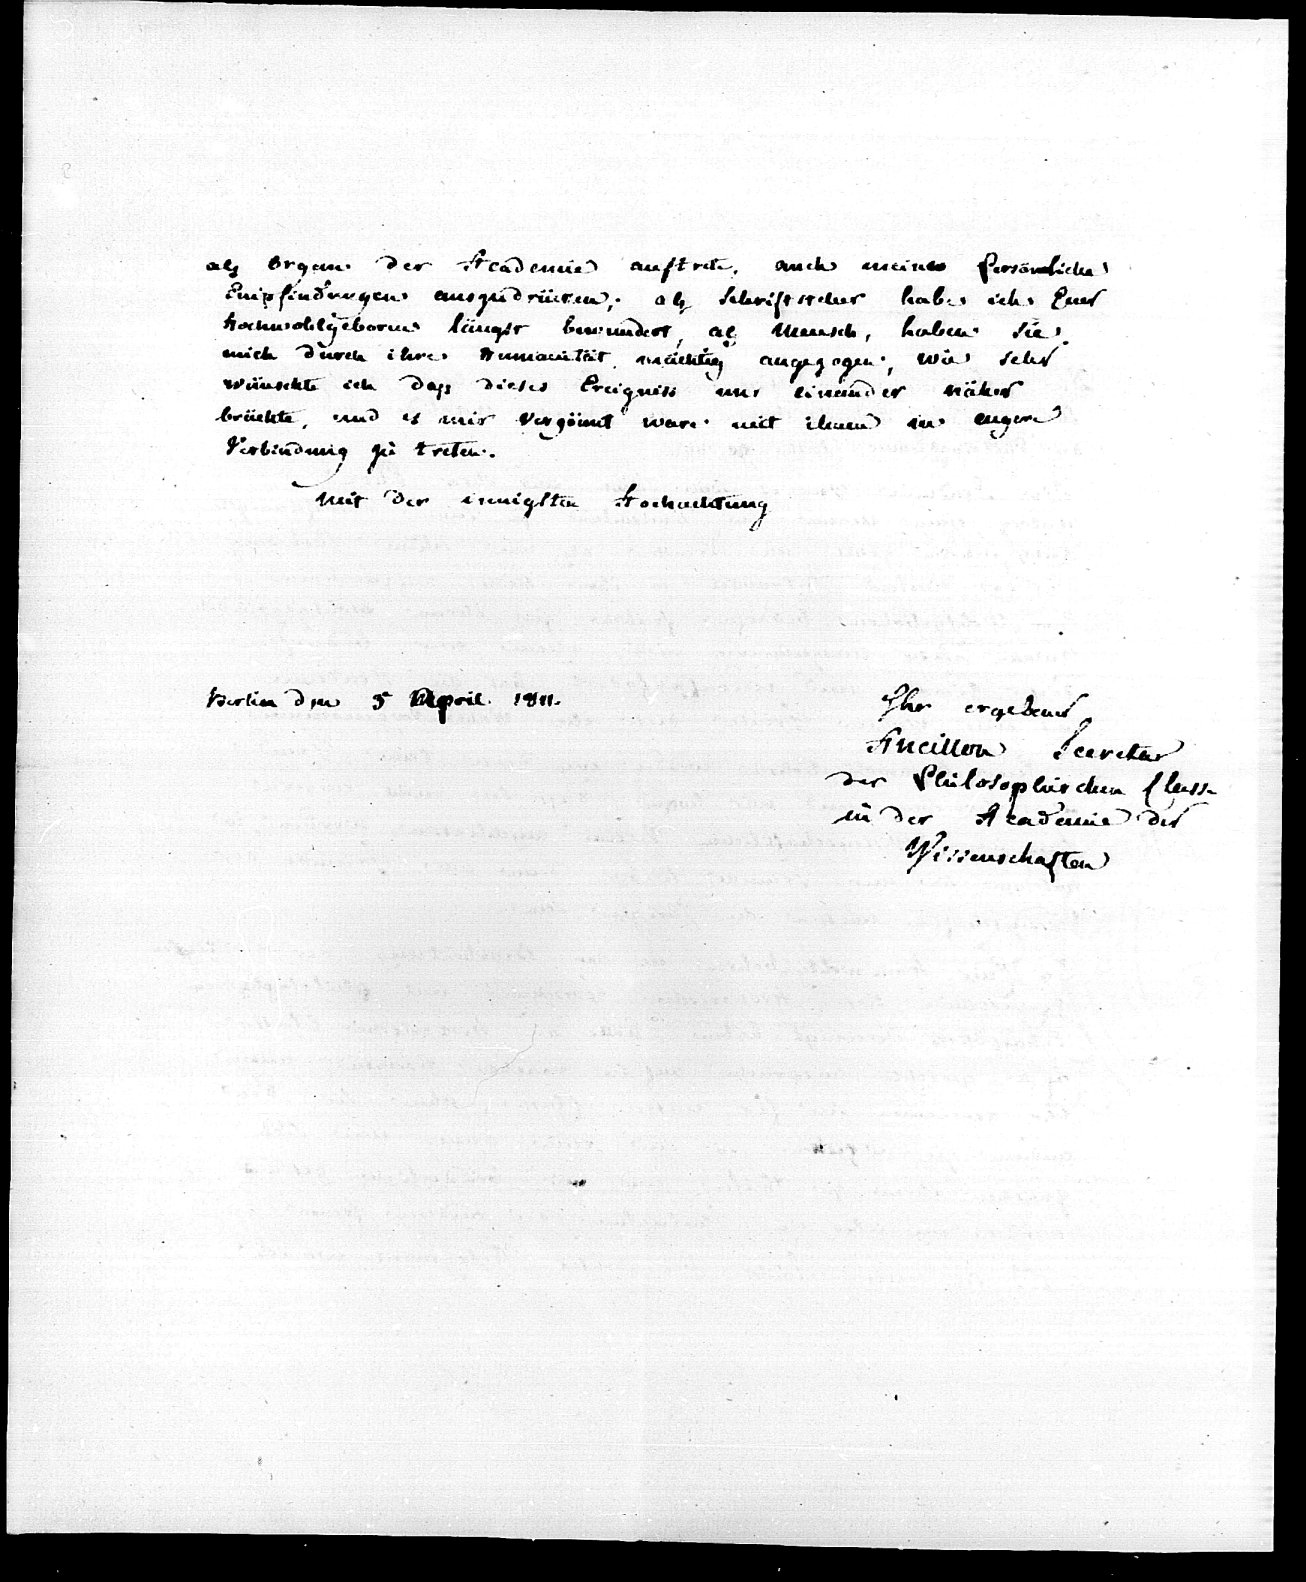 als Organ der Academie auftrete, auch meine persönliche
Empfindungen auszudrücken; als Schriftsteller habe ich Euer
Hochwohlgeboren längst bewundert, als Mensch, haben Sie
mich durch ihre Humanität mächtig angezogen; wie sehr
wünschte ich daß dieses Ereigniss uns einander näher
brächte, und es mir vergönnt ware mit ihnen in engere
Verbindung zu treten.
Mit der innigsten Hochachtung
Berlin den 5 April 1811.
Ihr ergebener
Ancillon Secretar
der Philosophischen Classe
in der Academie der
Wissenschaften